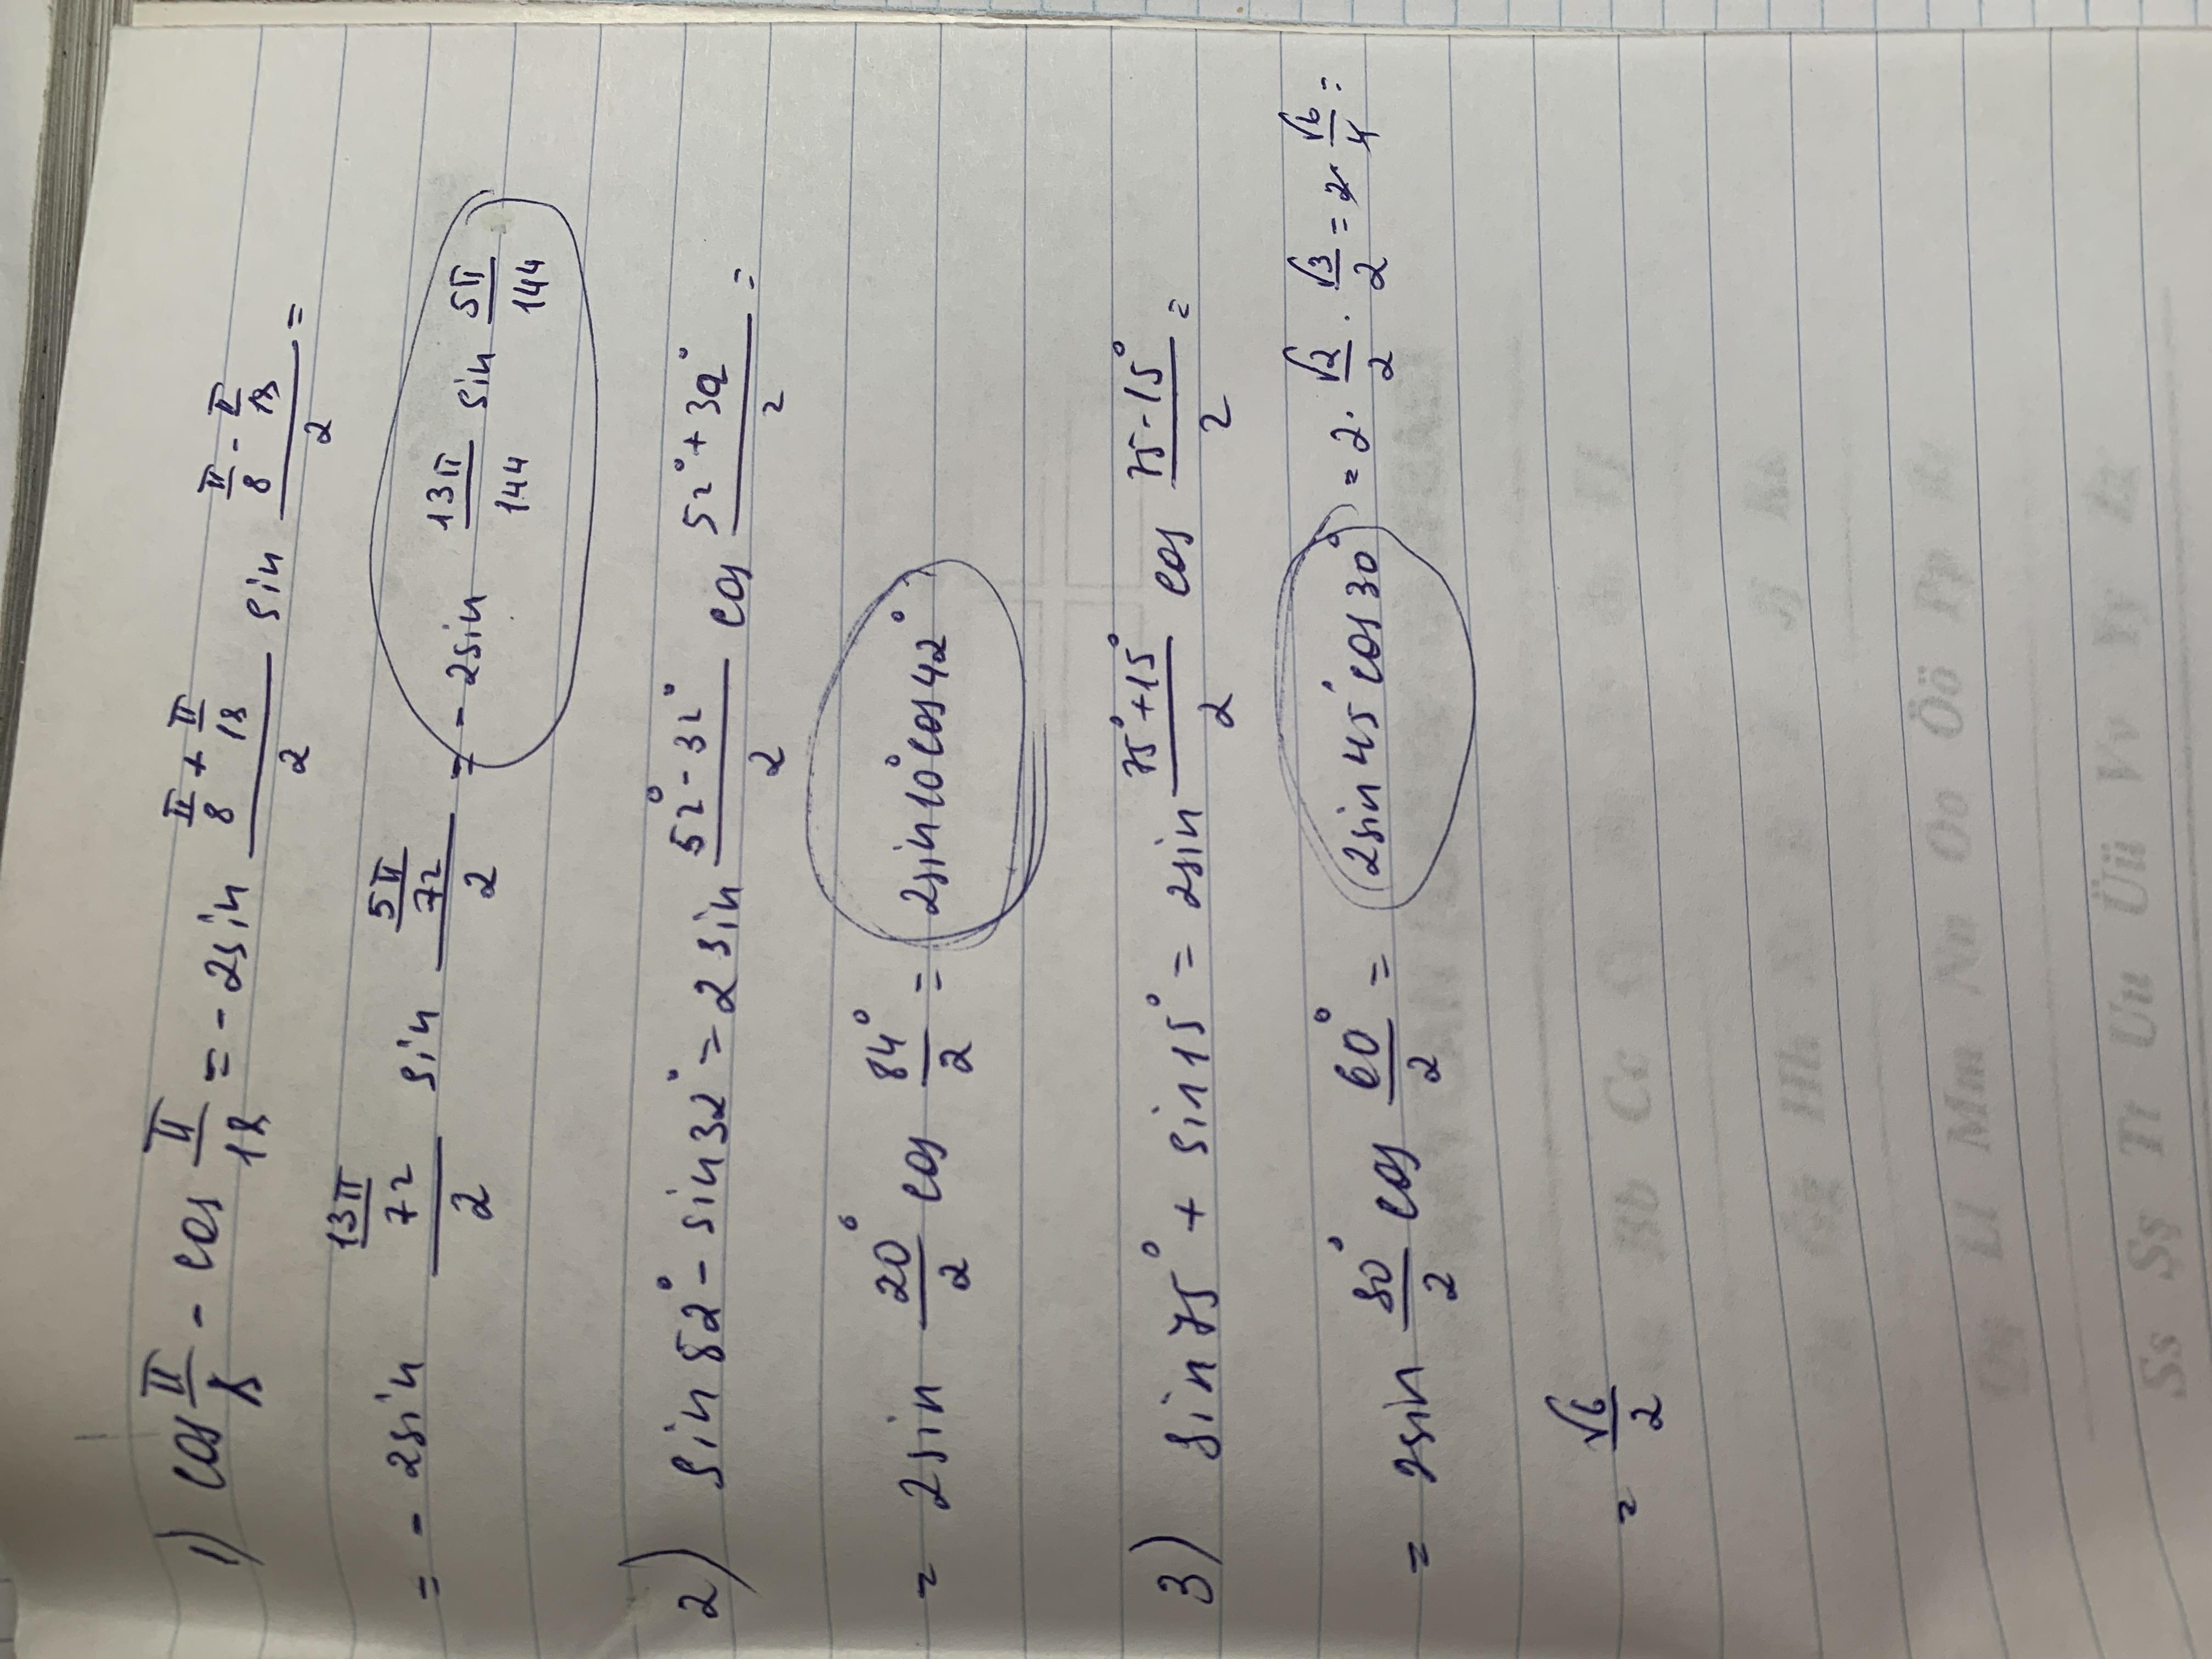 1) cos π/8 - cos π/18 = - 2sin (π/8 + π/18)/2 sin (π/8 - π/18)/2 =
= - 2sin (13π/72)/2 sin (5π/72)/2 = - 2sin 13π/144 sin 5π/144
2) sin 52° - sin 32° = 2 sin (52° - 32°)/2 cos (52° + 32°)/2 =
= 2sin 20°/2 cos 84°/2 = 2sin10°cos42°
3) sin 75° + sin 15° = 2sin (75° + 15°)/2 cos (75 - 15°)/2 =
= 2sin 90°/2 cos 60°/2 = 2sin45°cos30° = 2 · √2/2 · √3/2 = 2 √6/4 =
= √6/2
Bb Cc
Hh
Ll Mm Nn Oo Öö Pp
Ss Şş Tt Uu Üü Vv Yy Zz